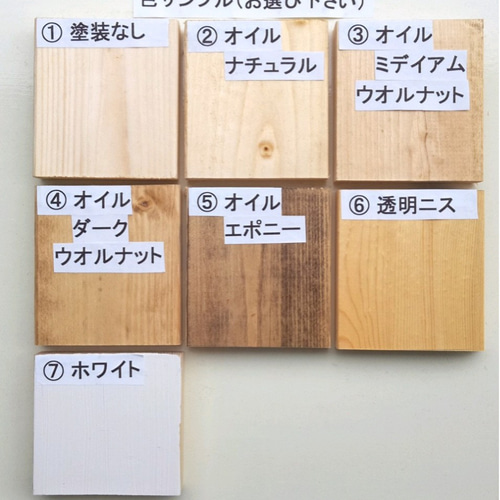 色サンプル(お選び下さい)
① 塗装なし
② オイル
ナチュラル
③ オイル
ミデイアム
ウオルナット
④ オイル
ダーク
ウオルナット
⑤ オイル
エポニー
⑥ 透明ニス
⑦ ホワイト